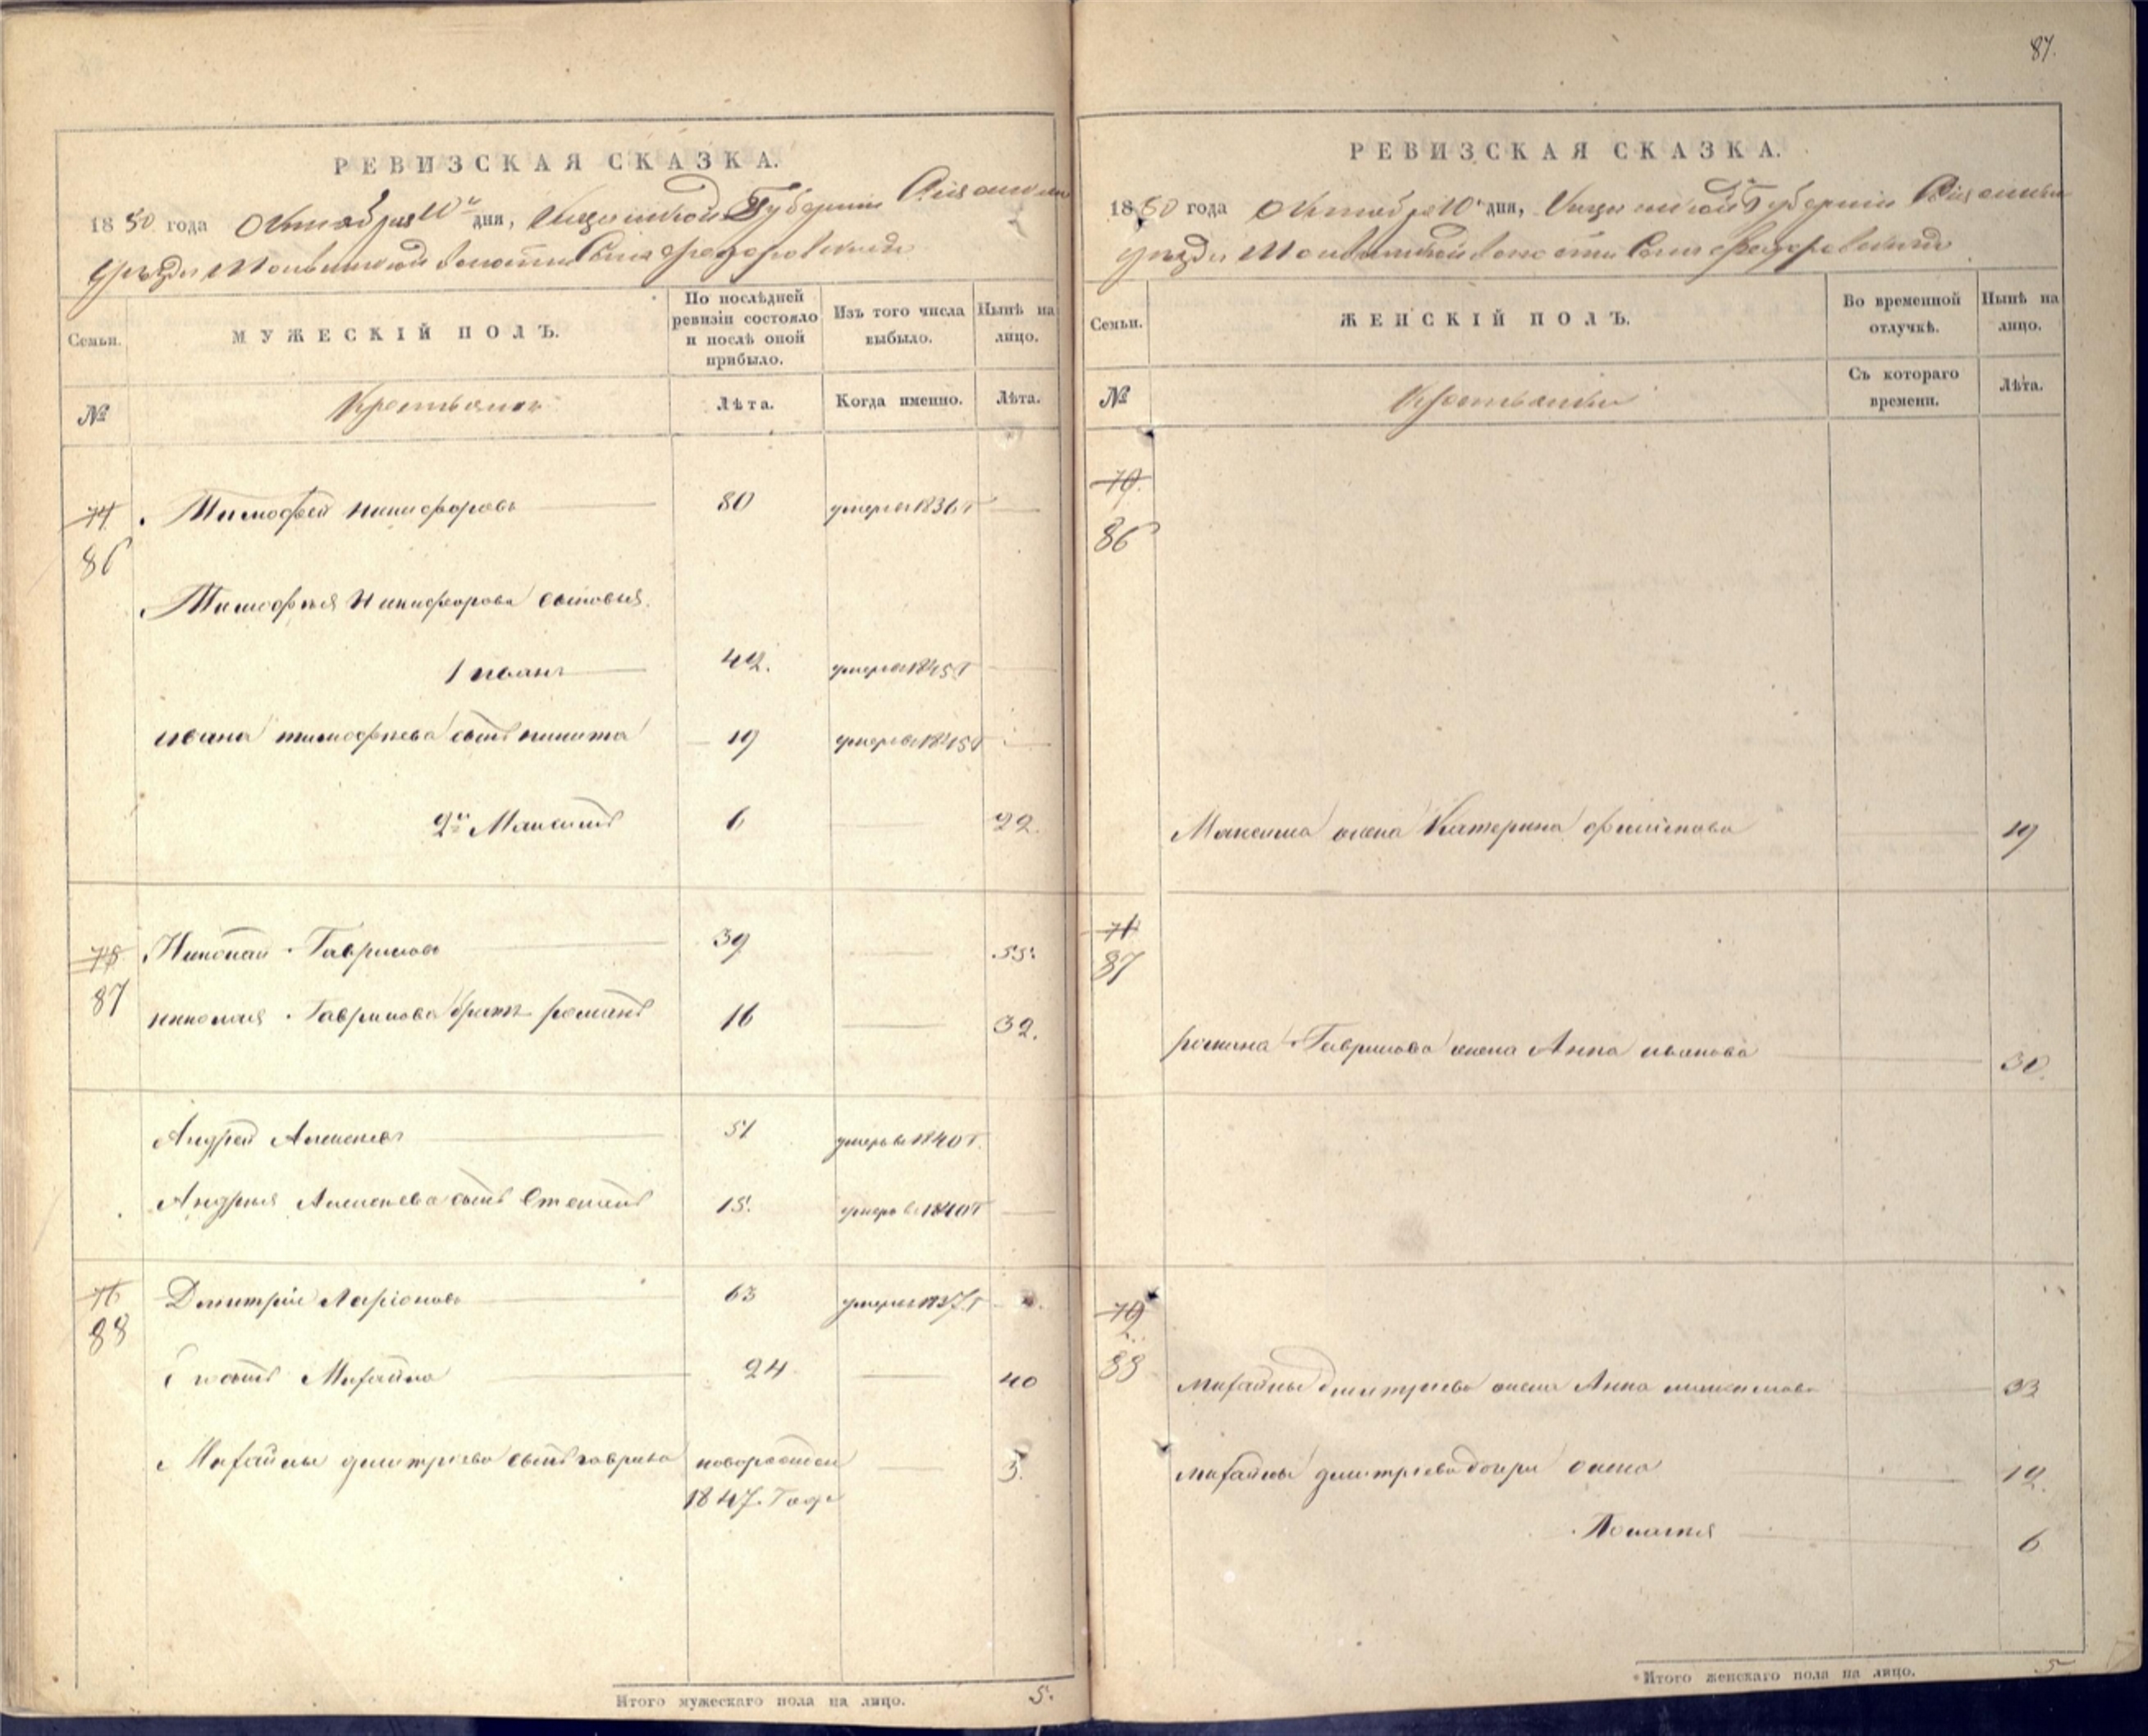 87.
РЕВИЗСКАЯ СКАЗКА.
1850 года Октября 10 дня, Губернии
уезда волости Села Федоровского
Семьи. МУЖЕСКІЙ ПОЛЪ. По послѣдней ревизіи состояло и послѣ оной прибыло. Изъ того числа выбыло. Нынѣ на лицо.
№ Крестьяне Лѣта. Когда именно. Лѣта.
74 86 Тимофей Никифоровъ 80 умеръ 1836 г
Тимофея Никифорова сыновья
1 иванъ 42. умеръ 1845 г
ивана тимофеева сынъ никита 19 умеръ 1845 г
2й Максимъ 6 22.
75 87 Николай Гавриловъ 39 55.
николая Гаврилова братъ романъ 16 32.
Андрей Алексеевъ 51 умеръ в 1840 г.
Андрея Алексеева сынъ Степанъ 15. умеръ в 1840 г
76 88 Дмитрій Ларіоновъ 63 умеръ 1837 г
Его сынъ Михайла 24 40
Михайлы дмитріева сынъ гаврила новорожден 3.
1847. Года
Итого мужескаго пола на лицо. 5.
РЕВИЗСКАЯ СКАЗКА.
1850 года Октября 10 дня, Губерніи
уезда волости Села Федоровского
Семьи. ЖЕНСКІЙ ПОЛЪ. Во временной отлучкѣ. Нынѣ на лицо.
№ Крестьянки Съ котораго времени. Лѣта.
70. 86
Максима жена Катерина филипова 19
71 87
романа Гаврилова жена Анна иванова 30.
72 88
михайлы дмитріева жена Анна максимова 33
михайлы дмитріева дочери 12.
6
Итого женскаго пола на лицо. 5